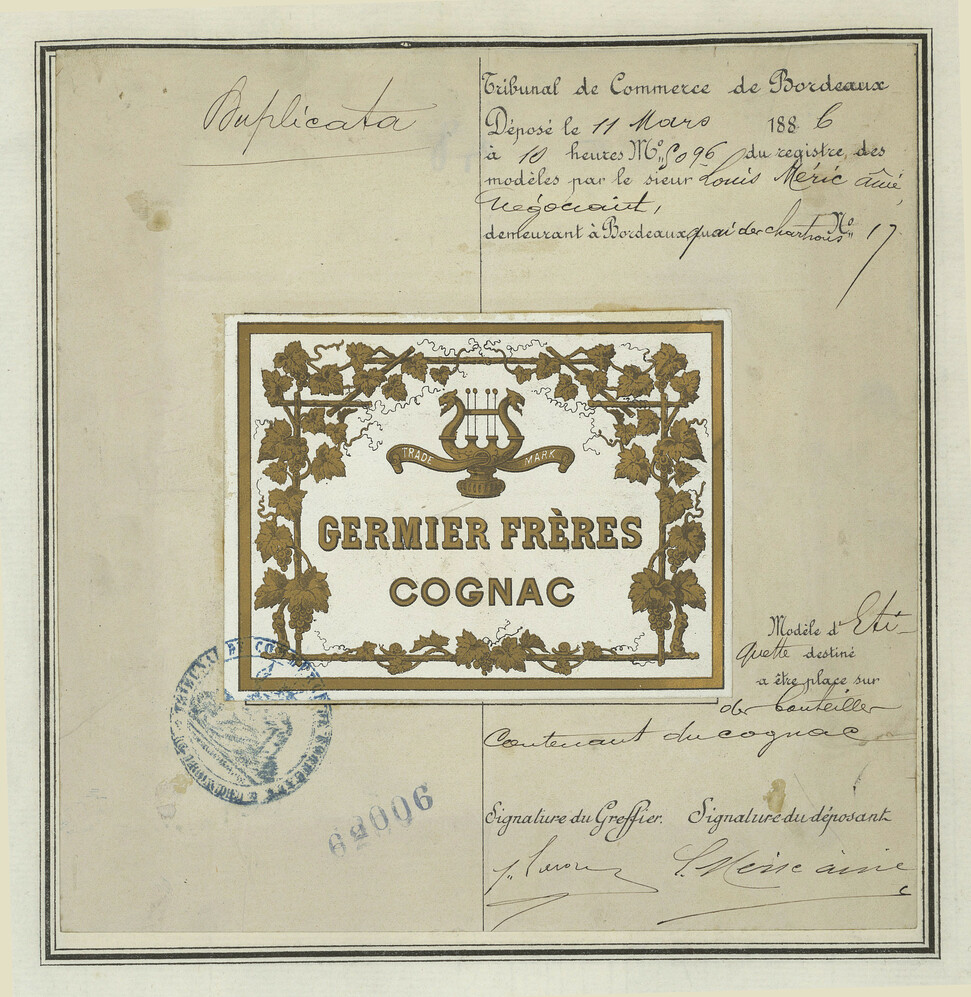 Duplicata
Tribunal de Commerce de Bordeaux
Déposé le 11 Mars 1886
à 10 heures Nº 5096 du registre des
modèles par le sieur Louis Méric aîné,
Négociant,
demeurant à Bordeaux quai des chartrons Nº 17
TRADE MARK
GERMIER FRÈRES
COGNAC
Modèle d'Eti-
quette destiné
a être place sur
des bouteilles
Contenant du cognac
TRIBUNAL DE COMMERCE
62006
Signature du Greffier. Signature du déposant
L. Méric aîné